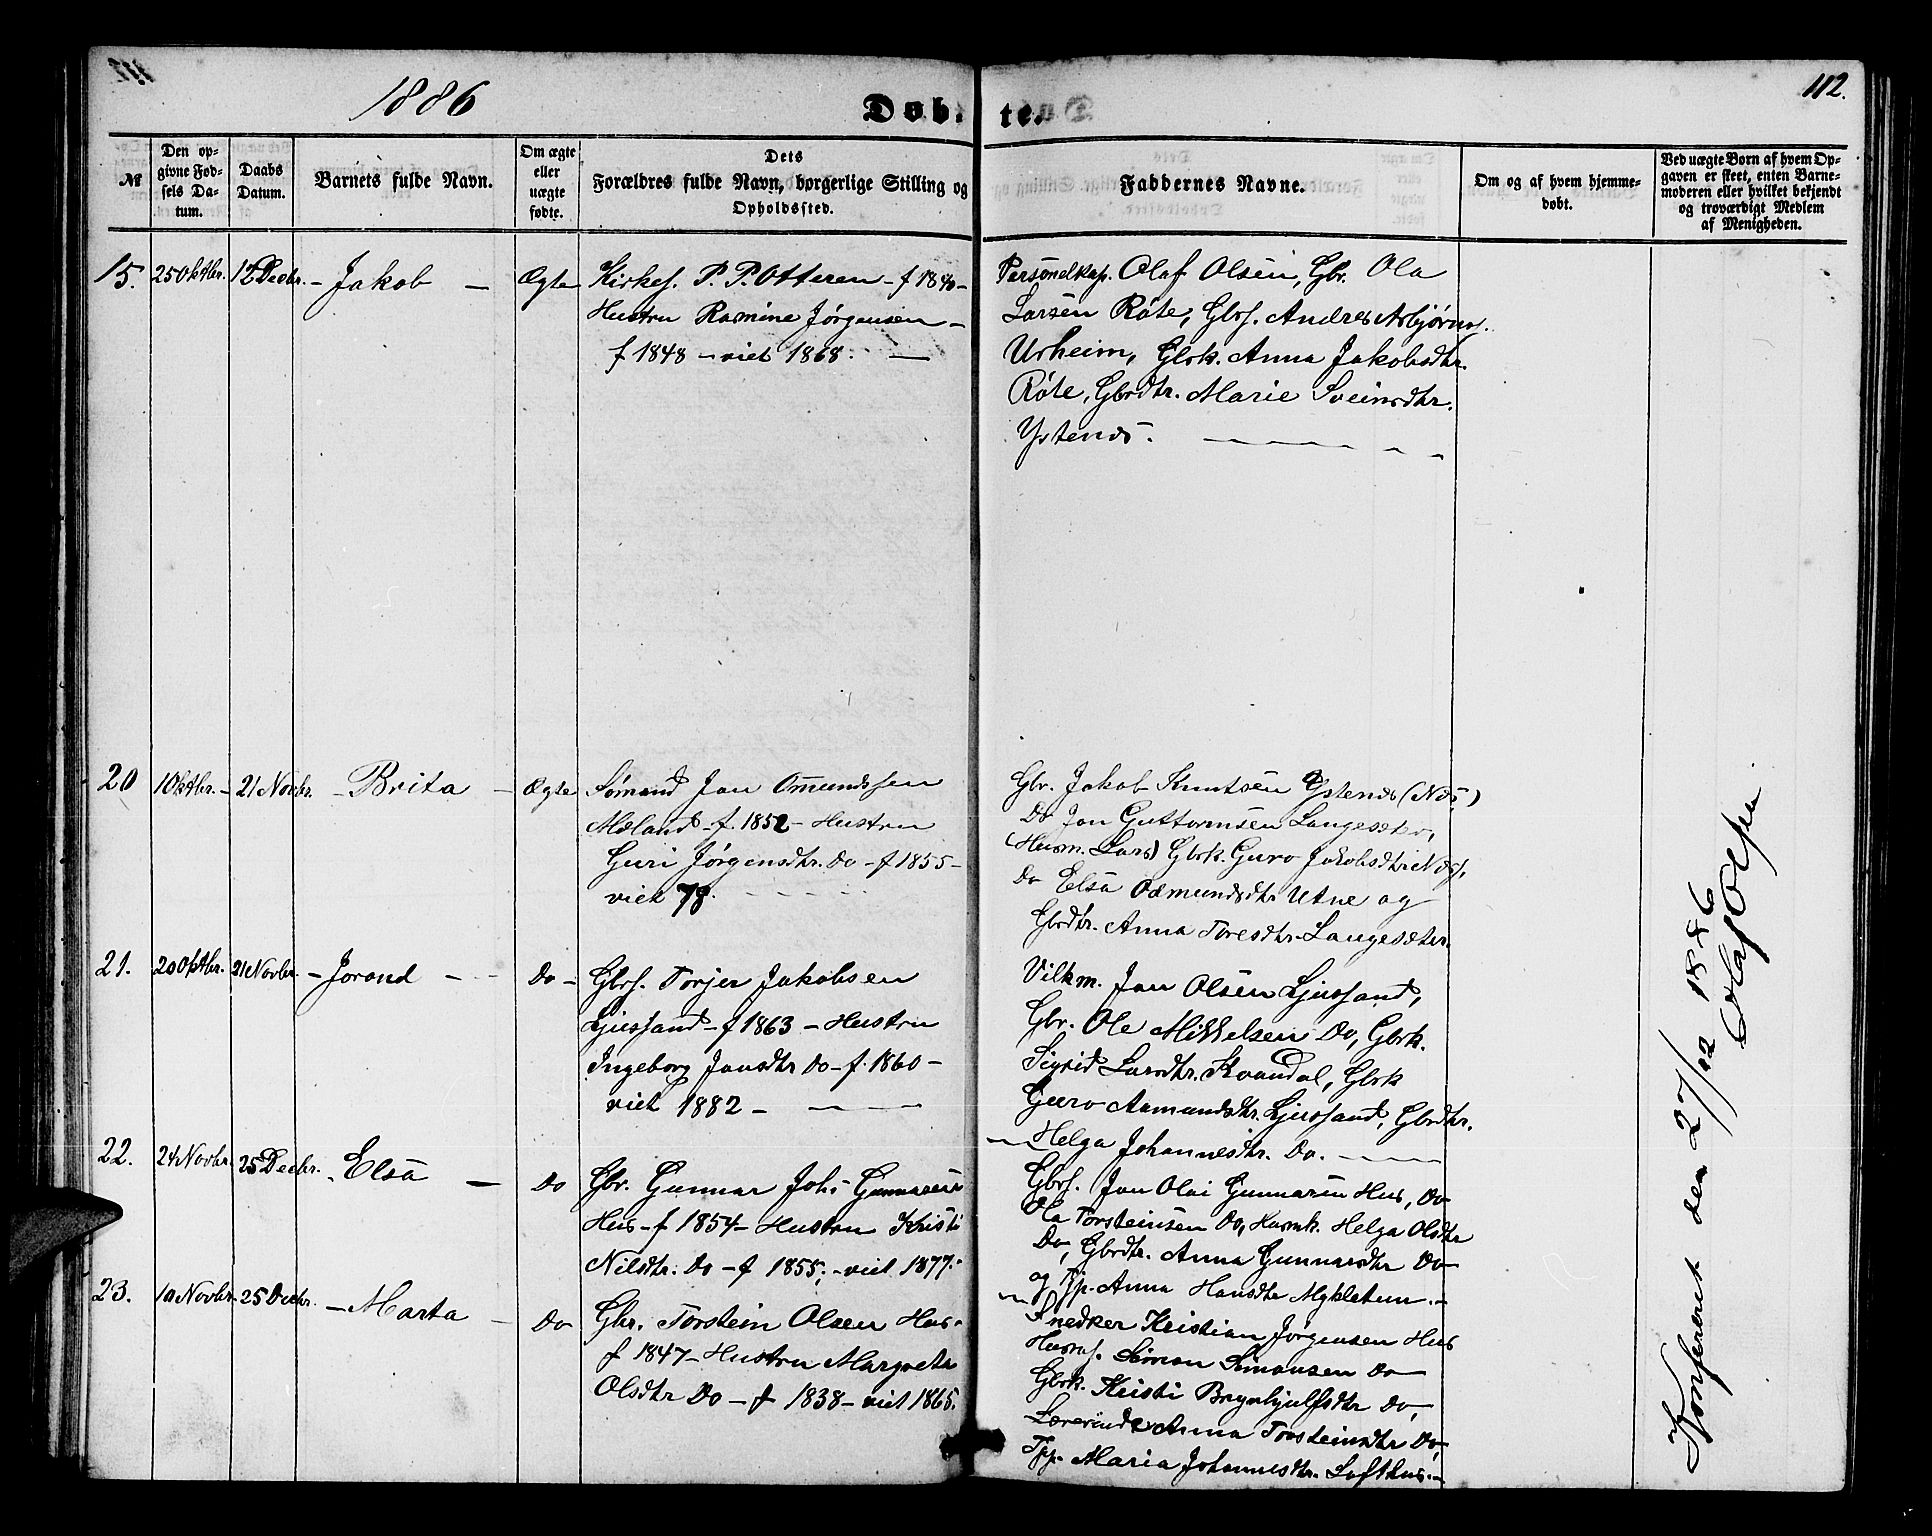 1886
Døbte.
112.
№
Den opgivne Fødsels Datum.
Daabs Datum.
Barnets fulde Navn.
Om ægte eller uægte fødte.
Dets Forældres fulde Navn, borgerlige Stilling og Opholdssted.
Faddernes Navne.
Om og af hvem hjemmedøbt.
Ved uægte Børn af hvem Opgaven er skeet, enten Barnemoderen eller hvilket bekjendt og troværdigt Medlem af Menigheden.
15. 25 Oktbr. 12 Decbr. – Jakob – Ægte
Kirkes. P. P. Otteren – f 1840 –
Hustru Rasmine Jørgensen –
f 1848 – viet 1868. –
Personelkap. Olaf Olsen, Gbr. Ola
Larsen Røte, Gbrs. Andres Asbjørns.
Urheim, Gbrk. Anna Jakobsdtr.
Røte, Gbrdtr. Marie Sveinsdtr.
Ystenes. –
20 1 Oktbr. – 21 Novbr. – Brita – Ægte
Sømand Jon Omundssen
Mæland – f. 1852 – Hustru
Guri Jørgensdtr. Do – f 1855 –
viet 78.
Gbr. Jakob Knutsen Ystenes (Næs)
Do Jon Guttormsen Langesæter,
(Husm. Lars) Gbrk. Guro Jakobsdtr Næs,
Do Elsa Odmundsdtr Utne og
Gbrdtr. Anna Toresdtr. Langesæter.
21. 20 Oktbr. 21 Novbr. – Jorand – Do –
Gbrs. Torjer Jakobsen
Ljussand – f 1863 – Hustru
Ingeborg Jonsdtr Do – f. 1860 –
viet 1882 –
Vilkm. Jon Olsen Ljussand,
Gbr. Ole Mikkelsen Do, Gbrk.
Sigrid Larsdtr. Kvandal, Gbrk
Guro Aamundsdtr. Ljussand, Gbrdtr.
Helga Johannesdtr. Do. –
22. 24 Novbr. 25 Decbr. – Elsa – Do
Gbr. Gunnar Johs Gunnarsen
Hus – f 1854 – Hustru Kristi
Nilsdtr. Do – f 1855; – viet 1877. –
Gbrs. Jon Olai Gunnarsen Hus, Do
Ola Torsteinsen Do, Husmk. Helga Olsdtr
Do, Gbrdtr. Anna Gunnarsdtr Do
og Tjp. Anna Hansdtr Mykletun. –
23. 10 Novbr. 25 Decbr. – Marta – Do
Gbr. Torstein Olsen Hus –
f 1847 – Hustru Margreta
Olsdtr Do – f 1838 – viet 1865.
Snedker Kristian Jørgensen Hus
Husms. Simon Simonsen Do
Gbrk. Kristi Brynhjulfsdtr Do,
Lærerinde Anna Torsteinsdtr Do,
Tjp. Maria Johannesdtr. Lofthus. –
Konfereret den 27/12 1886
Olaf Olsen